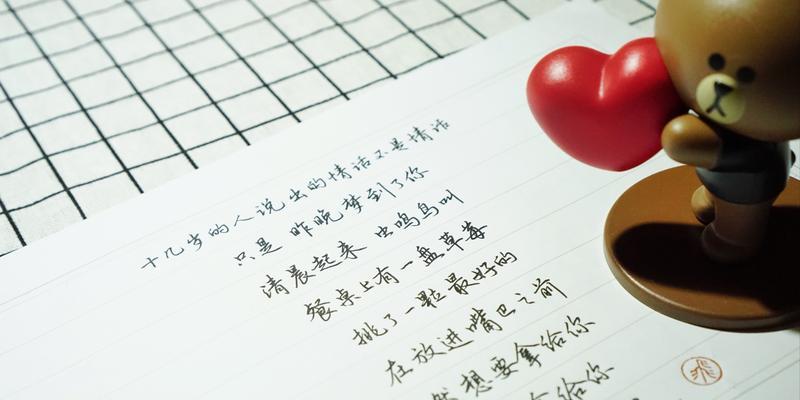 十几岁的人说出的情话不是情话
只是 昨晚梦到了你
清晨起来 虫鸣鸟叫
餐桌上有一盘草莓
挑了一颗最好的
在放进嘴巴之前
然想要拿给你
给你